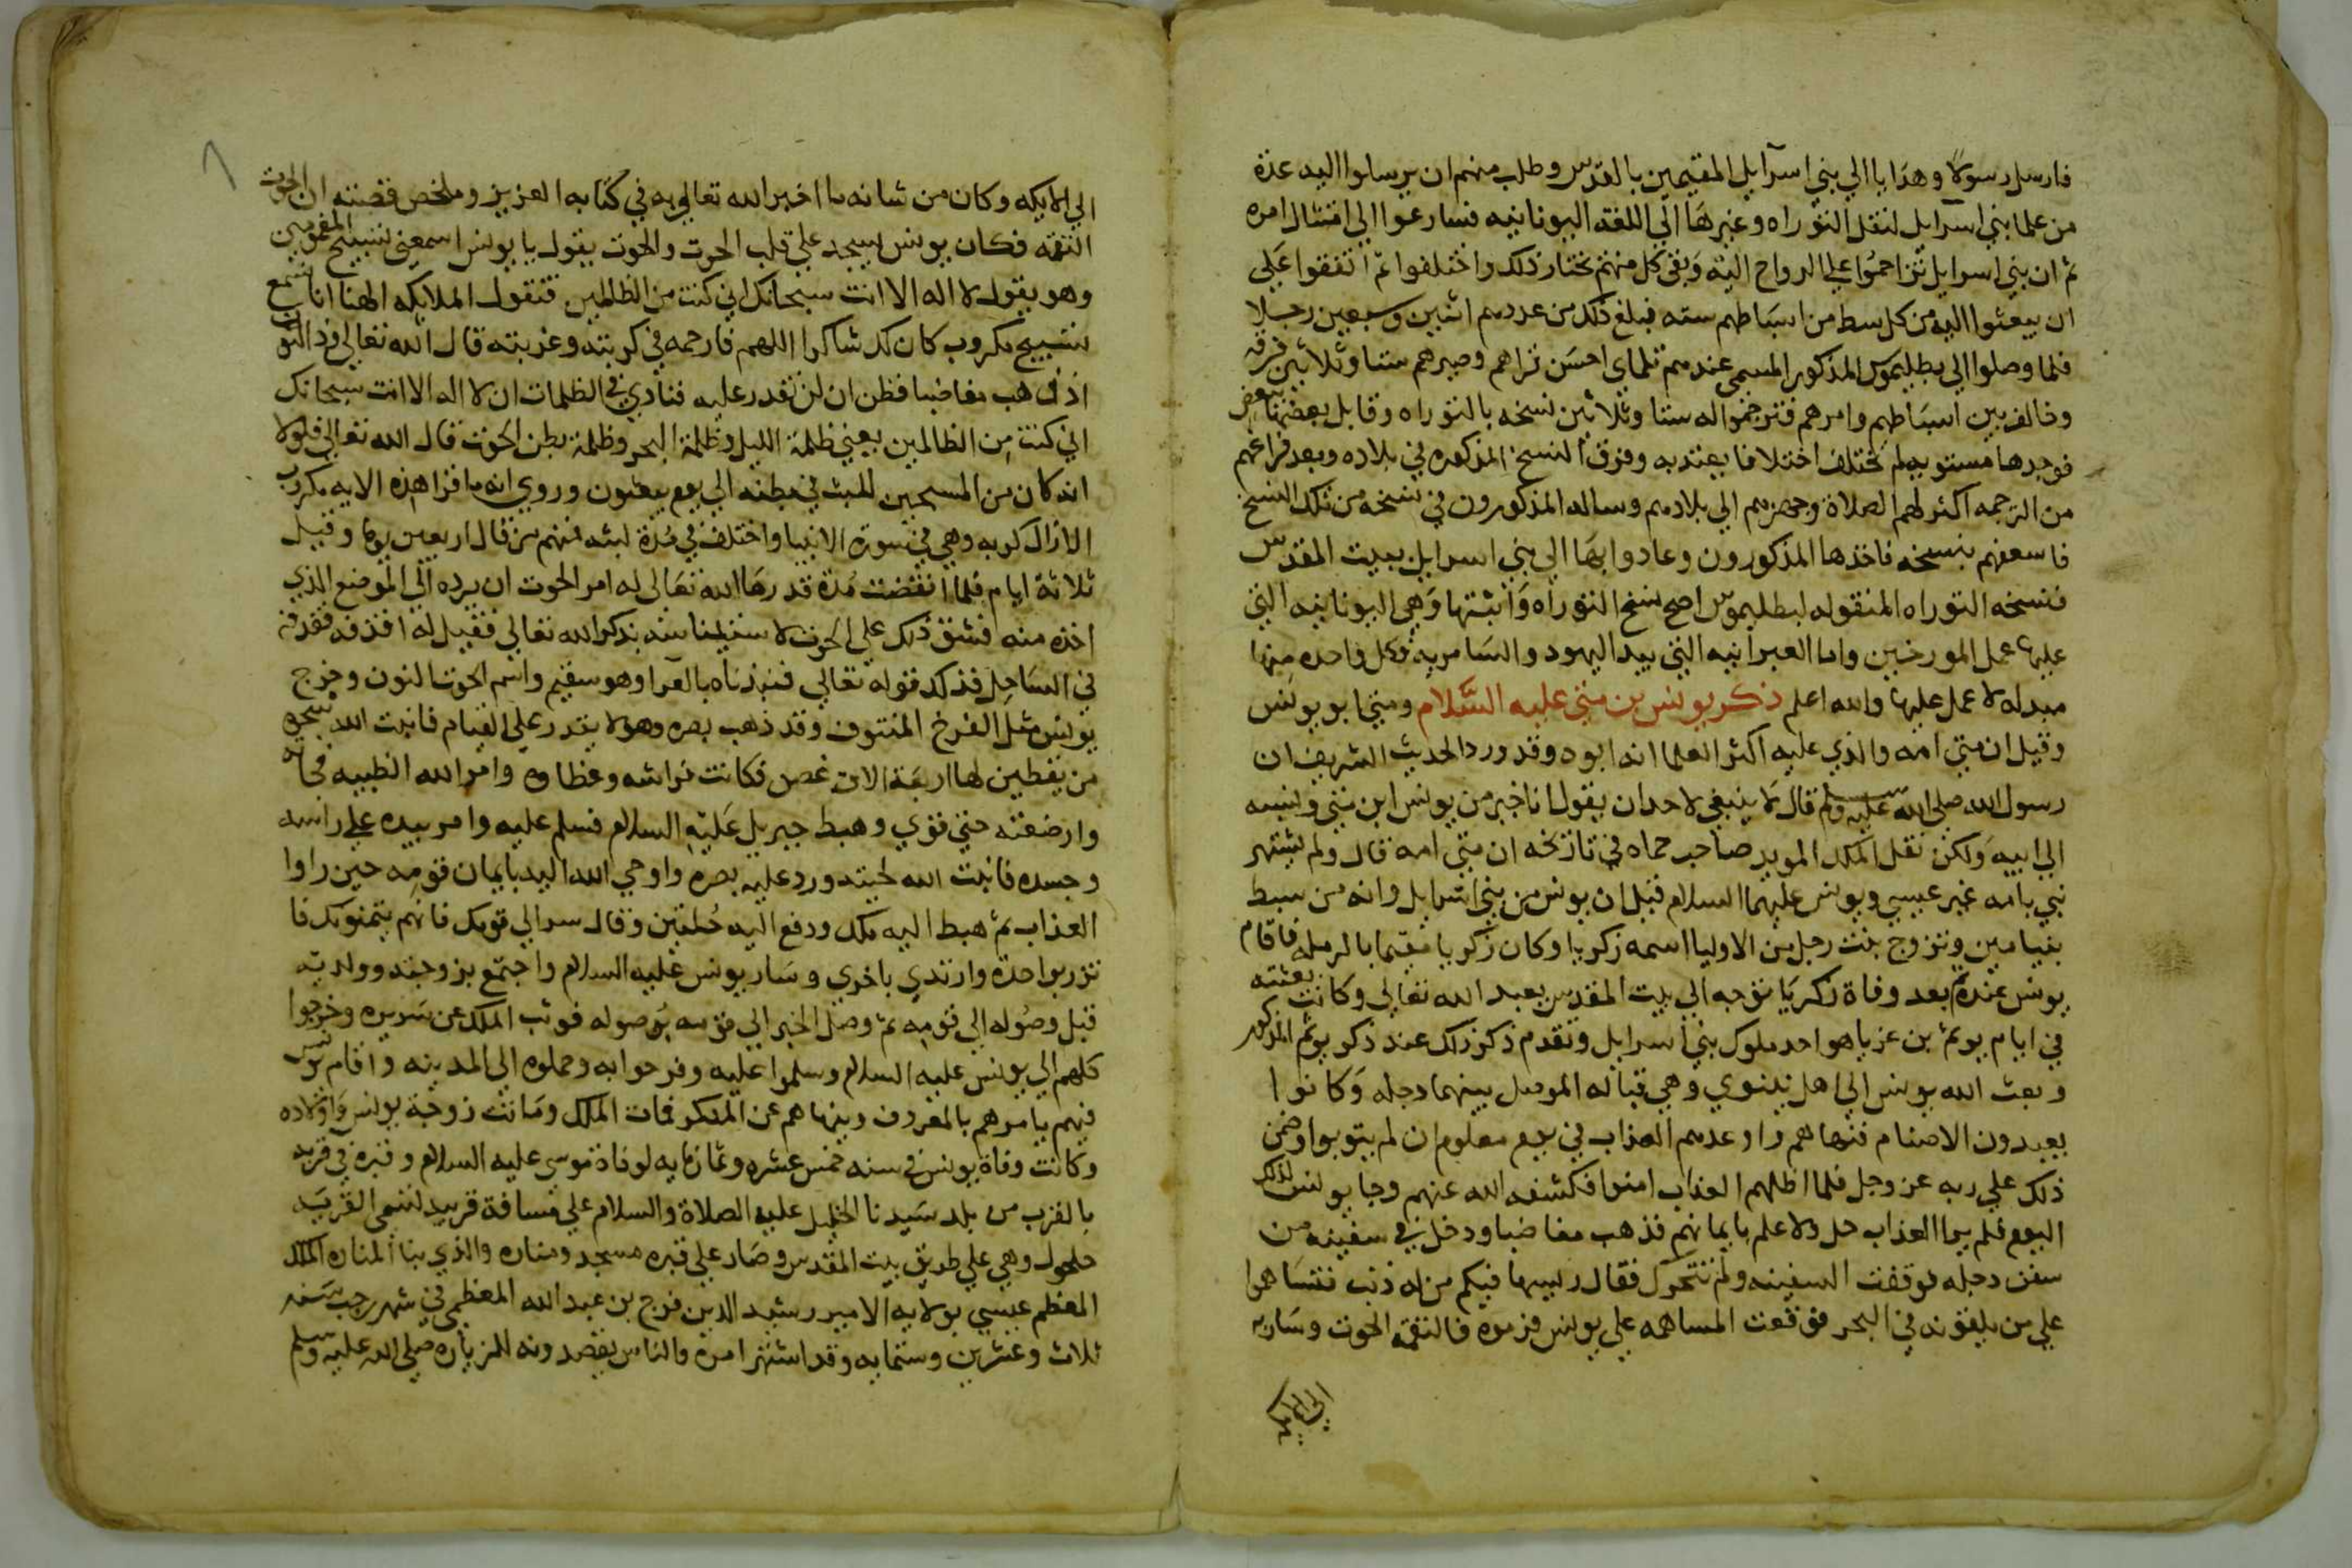 فارسل رسولا وهدايا الي بني اسرآيل المقيمين بالقدس وطلب منهم ان يرسلوا اليه عدة
من علما بني اسرايل لنقل التوراه وغيرها الي اللغه اليونانيه فسارعوا الي امتثال امره
ثم ان بني اسرايل تزاحموا علي الرواح اليه وبقي كل منهم يختار ذلك واختلفوا ثم اتفقوا علي
ان يبعثوا اليه من كل سبط من اسباطهم سته فبلغ ذلك من عددهم اثنين وسبعين رجلا
فلما وصلوا الي بطليموس المذكور المسمي عندهم تلماي احسن قراهم وصيرهم ستا وثلاثين فرقه
وخالف بين اسباطهم وامرهم فترجموا له ستا وثلاثين نسخه بالتوراه وقابل بعضها ببعض
فوجدها مستويه لم تختلف اختلافا يعتد به وفرق النسخ المذكوره في بلاده وبعد فراغهم
من الترجمه اكثر لهم الصلاة وجهزهم الي بلادهم وساله المذكورون في نسخه من تلك النسخ
فاسعفهم بنسخه فاخذها المذكورون وعادوا بها الي بني اسرايل ببيت المقدس
فنسخه التوراه المنقوله لبطليموس اصح نسخ التوراه وأثبتها وهي اليونانيه التي
عليها عمل المورخين واما العبرانيه التي بيد اليهود والسامريه فكل واحده منها
مبدله لا عمل عليها والله اعلم ذكر يونس بن متي عليه السلام ومتي ابو يونس
وقيل ان متي امه والذي عليه اكثر العلما انه ابوه وقد ورد الحديث الشريف ان
رسول الله صلي الله عليه وسلم قال لا ينبغي لاحد ان يقول انا خير من يونس ابن متي ونسبه
الي ابيه ولكن نقل الملك المويد صاحب حماه في تاريخه ان متي امه قال ولم يشتهر
نبي بامه غير عيسي ويونس عليهما السلام قيل ان يونس من بني اسرايل وانه من سبط
بنيامين وتزوج بنت رجل من الاوليا اسمه زكريا وكان زكريا مقيما بالرمله فاقام
يونس عنده ثم بعد وفاة زكريا توجه الي بيت المقدس يعبد الله تعالي وكانت بعثته
في ايام يوثم بن عزيا هو احد ملوك بني اسرايل وتقدم ذكر ذلك عند ذكر يوثم المذكور
وبعث الله يونس الي اهل نينوي وهي قبالة الموصل بينهما دجله وكانوا
يعبدون الاصنام فنهاهم واوعدهم العذاب في يوم معلوم ان لم يتوبوا وضمن
ذلك علي ربه عز وجل فلما اظلهم العذاب امنوا فكشفه الله عنهم وجا يونس لذلك
اليوم فلم ير العذاب حل ولا علم بايمانهم فذهب مغاضبا ودخل في سفينه من
سفن دجله فوقفت السفينه ولم تتحرك فقال رييسها فيكم من له ذنب فتساهموا
علي من يلقونه في البحر فوقعت المساهمه علي يونس فرموه فالتقمه الحوت وسار به
الي الايكه
الي الايكه وكان من شانه ما اخبر الله تعالي به في كتابه العزيز وملخص قصته ان الحوت
التقمه فكان يونس يسجد علي قلب الحوت والحوت يقول يا يونس اسمعني تسبيح المغمومين
وهو يقول لا اله الا انت سبحانك اني كنت من الظالمين فتقول الملايكه الهنا انا نسمع
تسبيح مكروب كان لك شاكرا اللهم فارحمه في كربته وغربته قال الله تعالي وذا النون
اذ ذهب مغاضبا فظن ان لن نقدر عليه فنادي في الظلمات ان لا اله الا انت سبحانك
اني كنت من الظالمين يعني ظلمة الليل وظلمة البحر وظلمة بطن الحوت قال الله تعالي فلولا
انه كان من المسبحين للبث في بطنه الي يوم يبعثون وروي انه ما قرا هذه الايه مكروب
الا زال كربه وهي في سورة الانبيا واختلف في مدة لبثه فمنهم من قال اربعين يوما وقيل
ثلاثة ايام فلما انقضت مدة قدرها الله تعالي له امر الحوت ان يرده الي الموضع الذي
اخذه منه فشق ذلك علي الحوت لاستيناسه بذكر الله تعالي فقيل له اقذفه فقذفه
في الساحل فذلك قوله تعالي فنبذناه بالعرا وهو سقيم واسم الحوت النون وخرج
يونس مثل الفرخ المنتوف وقد ذهب بصره وهو لا يقدر علي القيام فانبت الله شجره
من يقطين لها اربعة الاف غصن فكانت فراشه وغطاوه وامر الله الظبيه فجاته
وارضعته حتي قوي وهبط جبريل عليه السلام فسلم عليه وامر بيده علي راسه
وجسده فانبت الله لحيته ورد عليه بصره واوحي الله اليه بايمان قومه حين راوا
العذاب ثم هبط اليه ملك ودفع اليه حلتين وقال سر الي قومك فانهم يتمنوك فا
تزر بواحدة وارتدي باخري وسار يونس عليه السلام واجتمع بزوجته وولديه
قبل وصوله الي قومه ثم وصل الخبر الي قومه بوصوله فوثب الملك عن سريره وخرجوا
كلهم الي يونس عليه السلام وسلموا عليه وفرحوا به وحملوه الي المدينه واقام يونس
فيهم يامرهم بالمعروف وينهاهم عن المنكر فمات الملك وماتت زوجة يونس واولاده
وكانت وفاة يونس في سنه خمس عشره وثمانمايه لوفاة موسي عليه السلام وقبره في قريه
بالقرب من بلد سيدنا الخليل عليه الصلاة والسلام علي مسافة قريبه تسمي القريه
حلحول وهي علي طريق بيت المقدس وصار علي قبره مسجد ومناره والذي بنا المناره الملك
المعظم عيسي بولايه الامير رشيد الدين فرج بن عبد الله المعظمي في شهر رجب سنه
ثلاث وعشرين وستمايه وقد اشتهر امره والناس يقصدونه للزياره صلي الله عليه وسلم